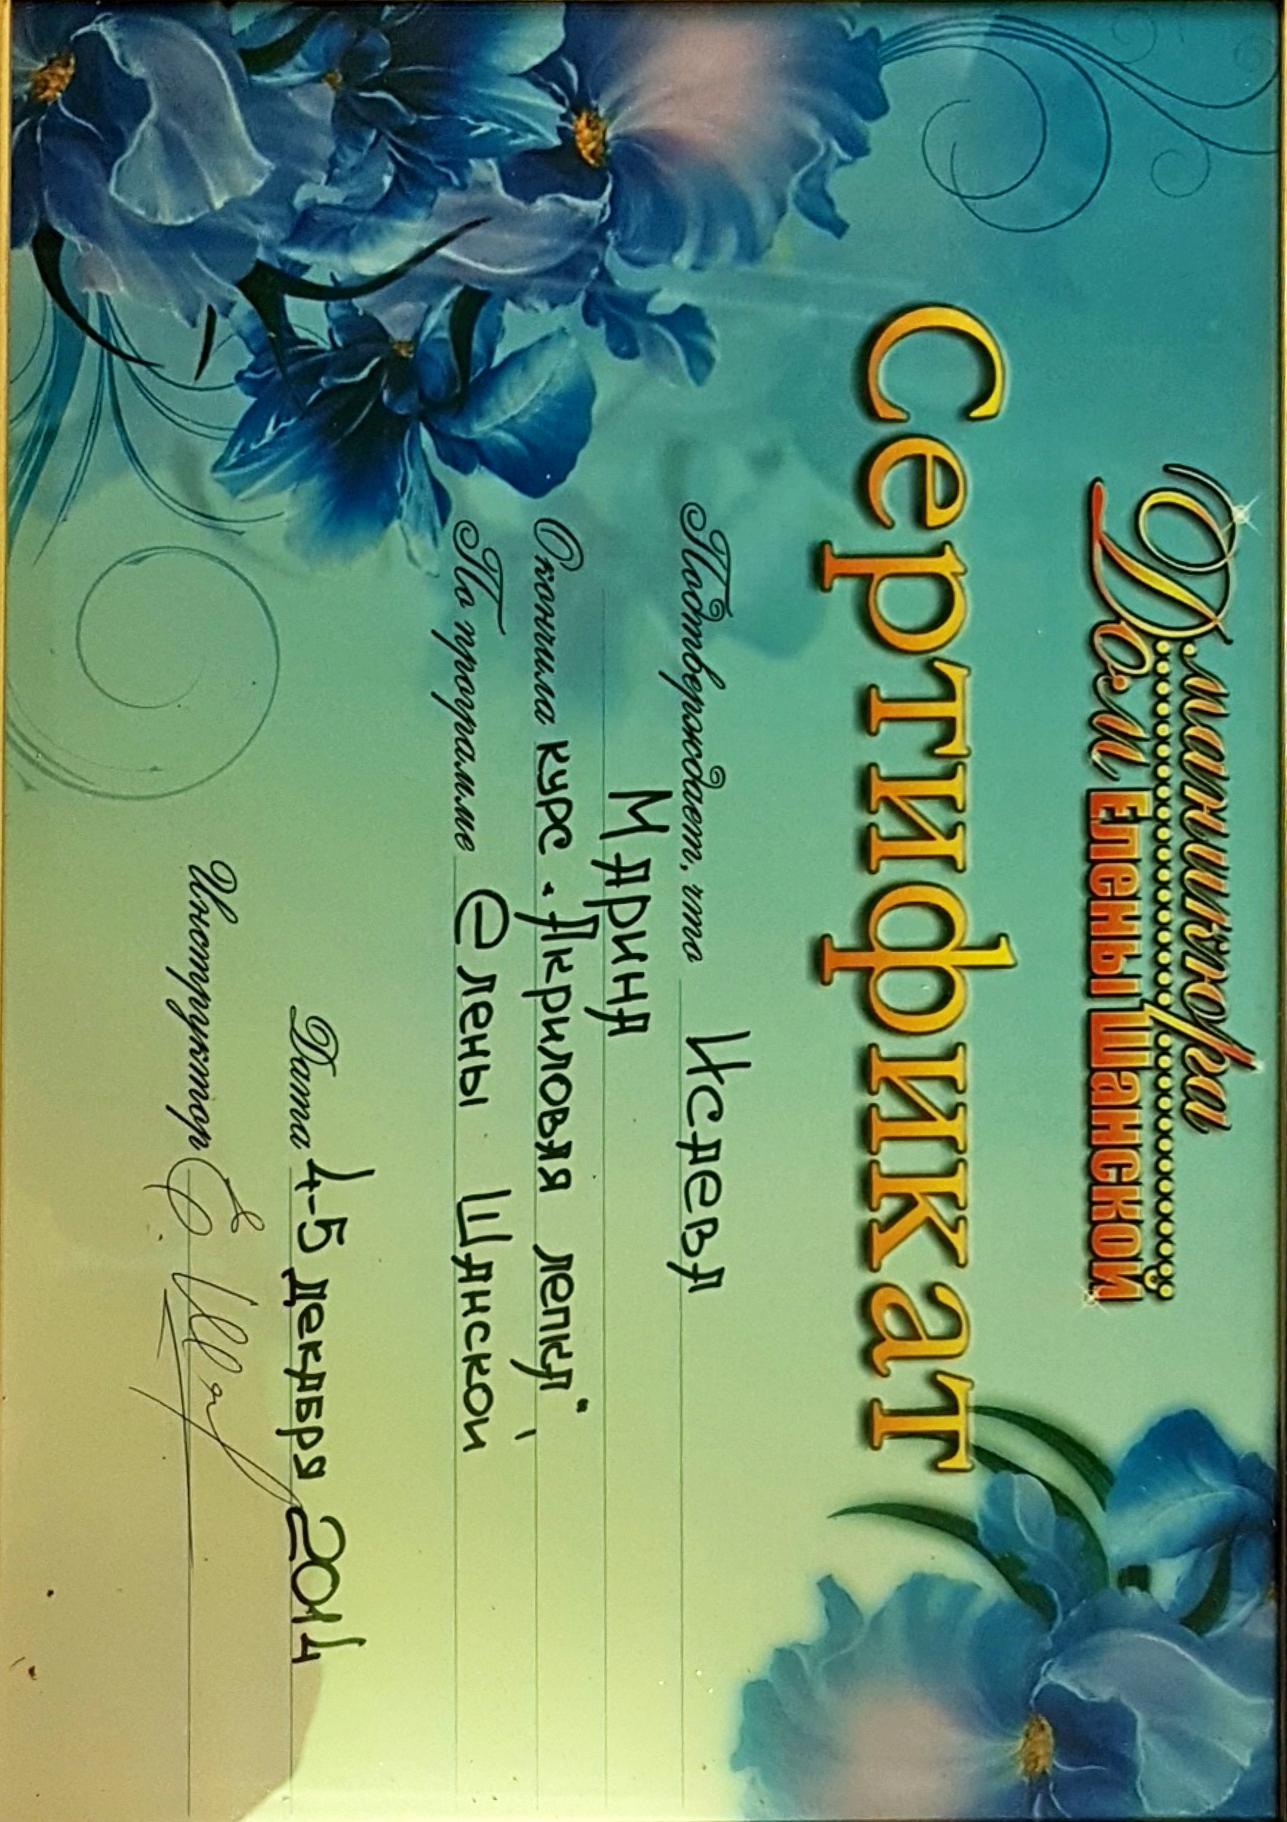 Дом маникюра
Елены Шанской
Сертификат
Подтверждает, что Исаева
Марина
Окончила курс "Акриловая лепка"
По программе Елены Шанской
Дата 4-5 декабря 2014
Инструктор